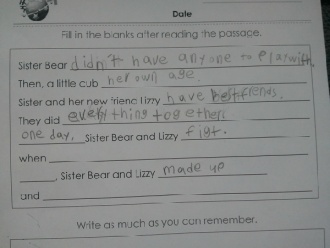 Date
Fill in the blanks after reading the passage.
Sister Bear didn't have anyone to playwith.
Then, a little cub her own age.
Sister and her new friend Lizzy have best friends.
They did every thing together.
one day, Sister Bear and Lizzy figt.
when
, Sister Bear and Lizzy made up
and
Write as much as you can remember.